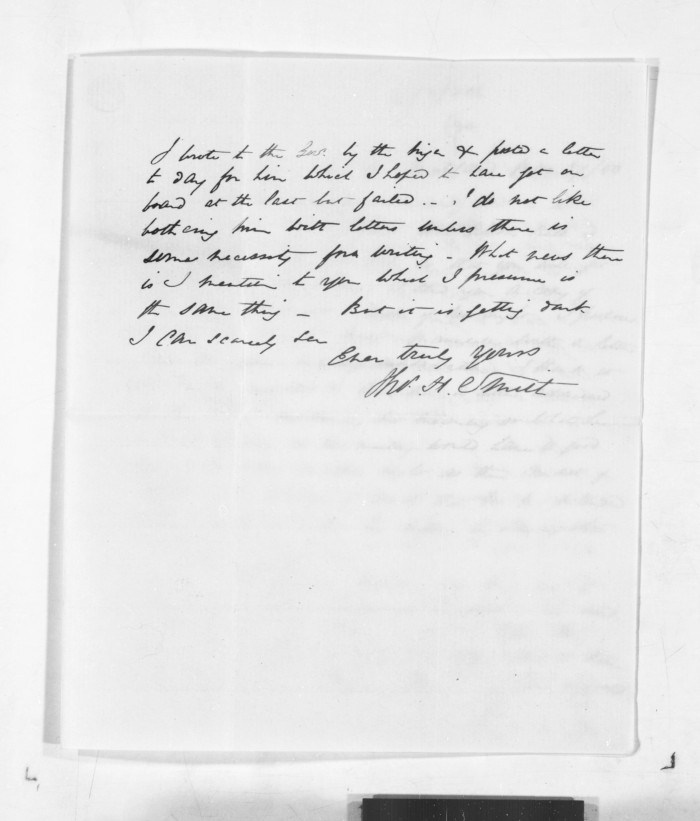 I wrote to the Gov. by the Niger & posted a letter
to day for him which I hoped to have got on
board at the last but failed - I do not like
bothering him with letters unless there is
some necessity for writing - What news there
is I mention to you which I presume is
the same thing - But it is getting dark
I can scarcely see
Ever truly yours
Jno. H. Smith